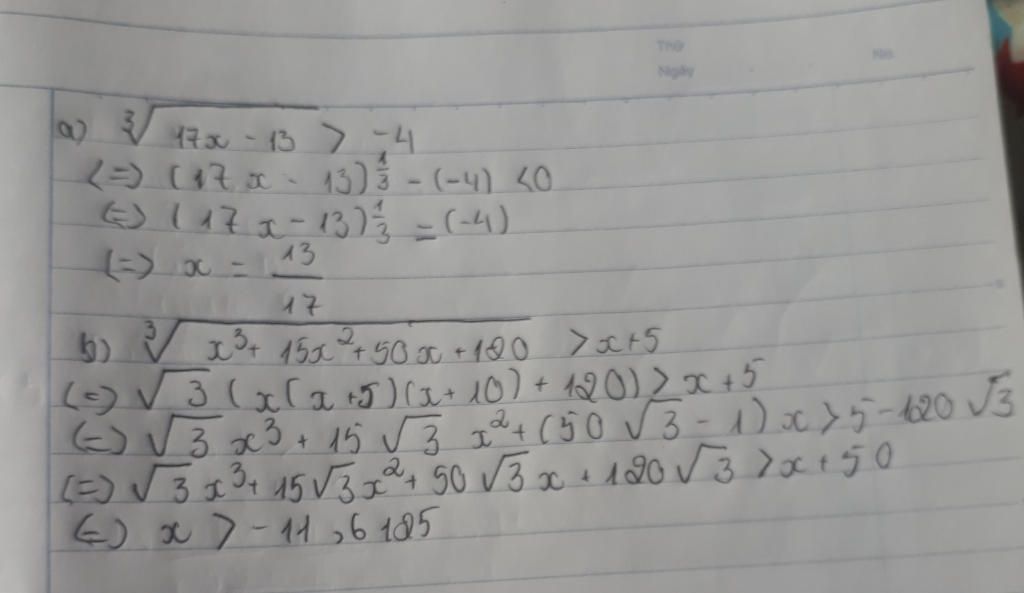 Thứ
No
Ngày
a) ∛(17x - 13) > -4
(=) (17x - 13)^(1/3) - (-4) <0
(=) (17x - 13)^(1/3) = (-4)
(=) x = 13/17
b) ∛(x³+ 15x²+50x+120) >x+5
(=) √3 (x(x+5)(x+10)+120)>x+5
(=) √3 x³ + 15√3 x²+(50√3-1)x>5-120√3
(=) √3x³+15√3x²+50√3x+120√3>x+50
(=) x > -11,6125